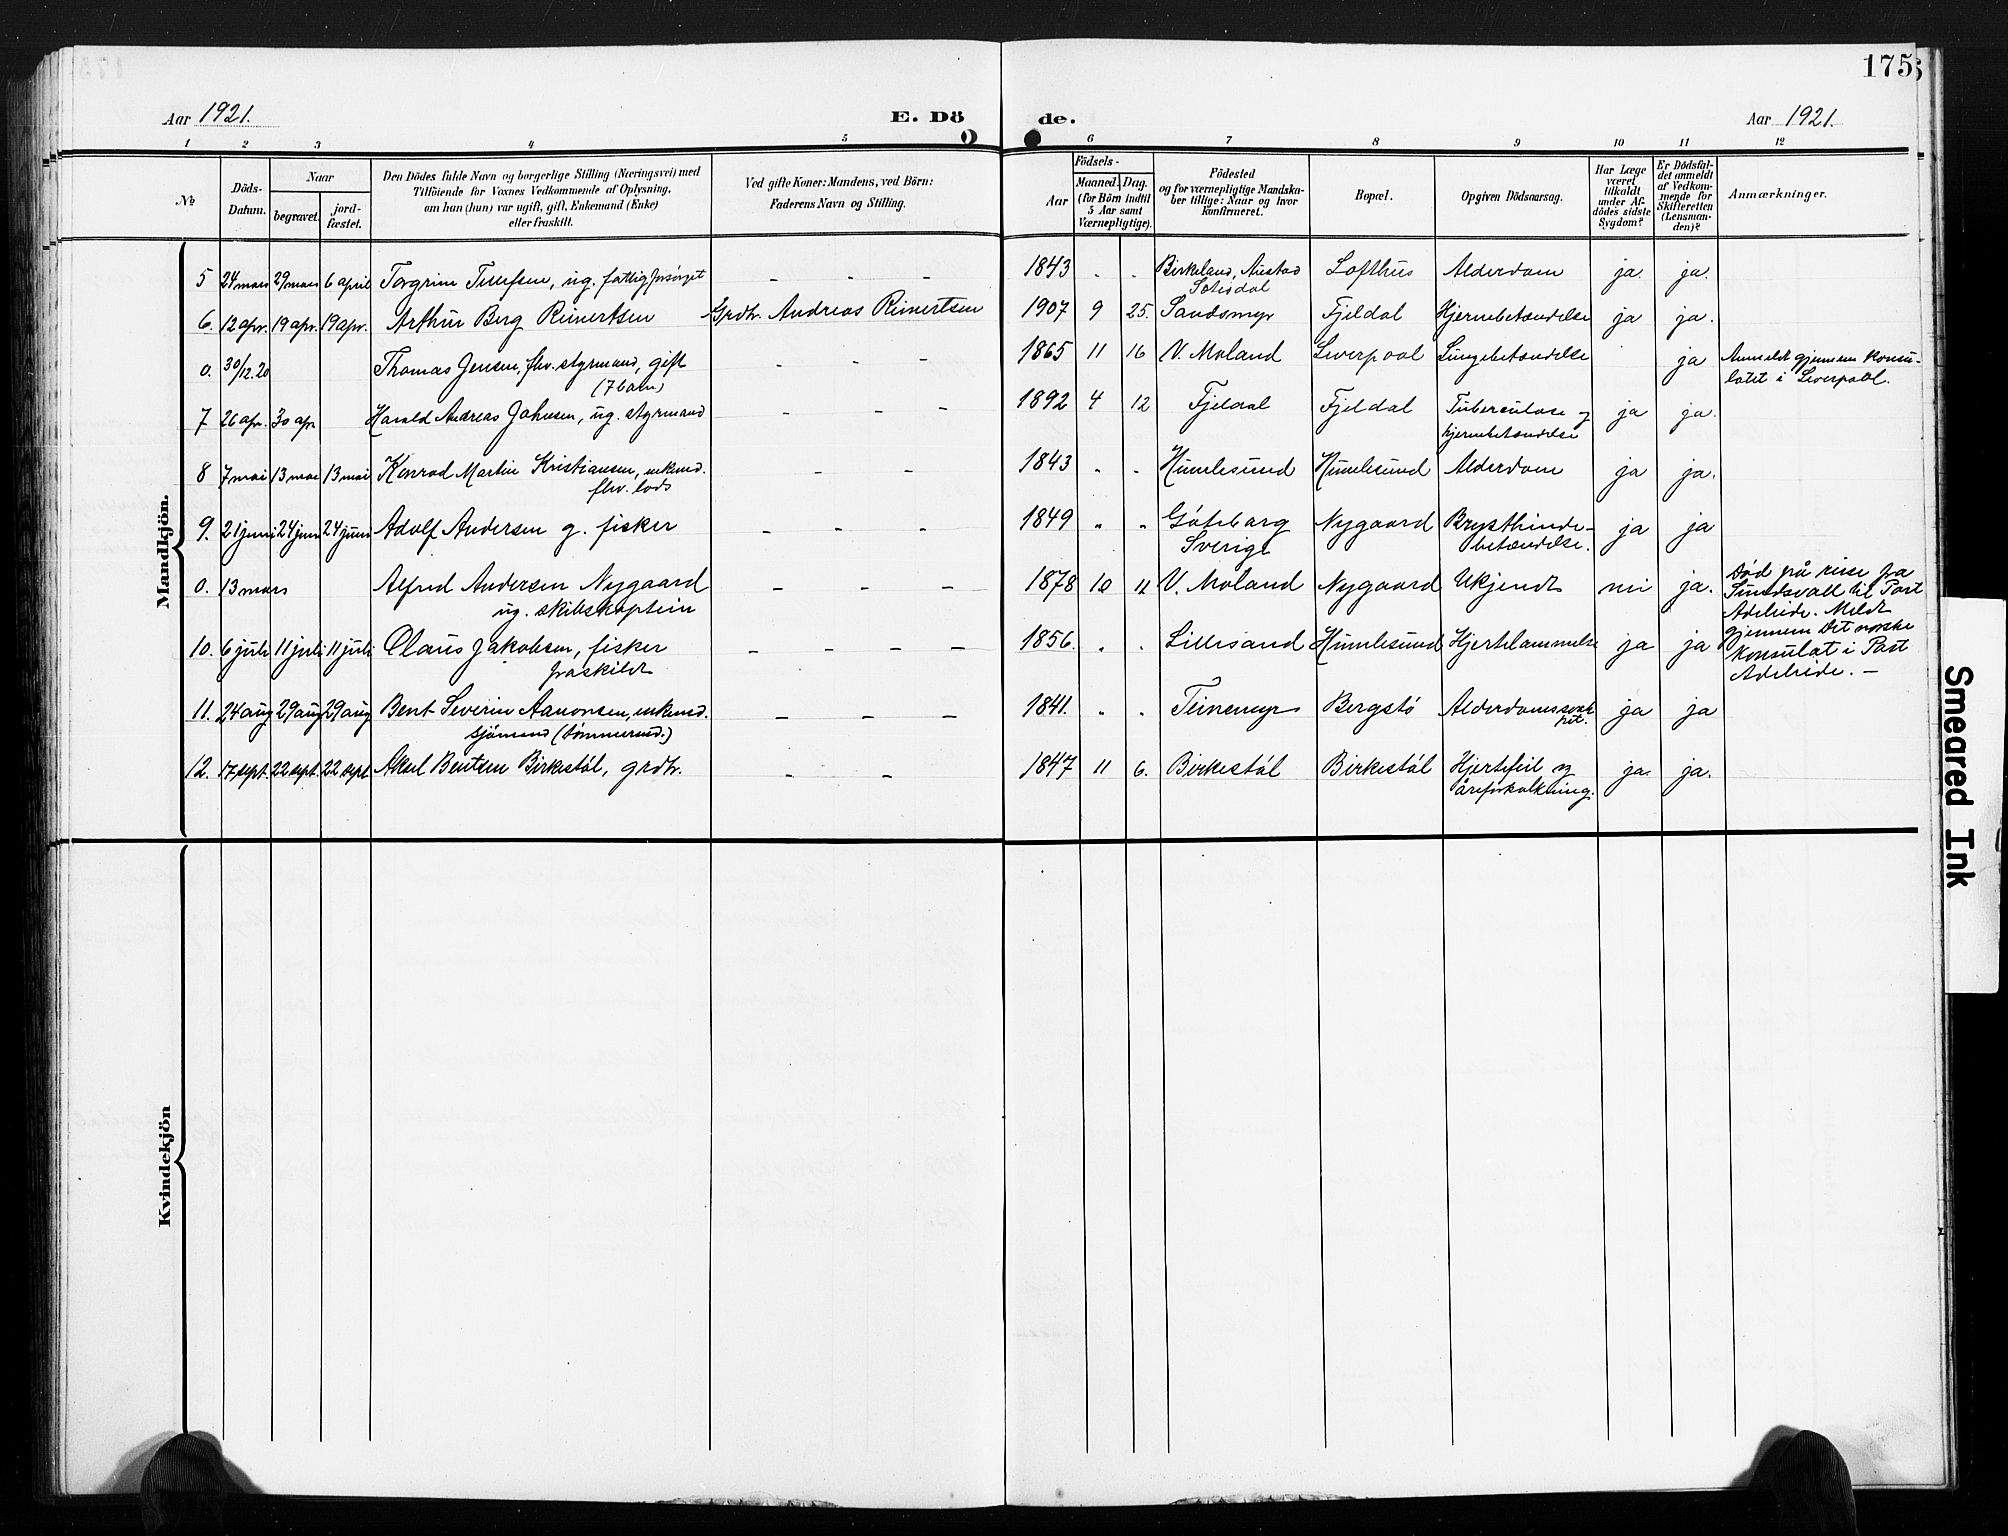 175
Aar 1921.
E. Dö
de.
Aar 1921.
1 2 3 4 5 6 7 8 9 10 11 12
№
Döds-
Datum.
Naar
begravet.
jord-
fæstet.
Den Dödes fulde Navn og borgerlige Stilling (Næringsvei) med
Tilföiende for Voxnes Vedkommende af Oplysning,
om han (hun) var ugift, gift, Enkemand (Enke)
eller fraskilt.
Ved gifte Koner: Mandens, ved Börn:
Faderens Navn og Stilling.
Födsels-
Aar
Maaned. Dag.
(for Börn indtil
5 Aar samt
Værnepligtige).
Födested
og for værnepligtige Mandska-
ber tillige: Naar og hvor
konfirmeret.
Bopæl.
Opgiven Dödsaarsag.
Har Læge
været
tilkaldt
under Af-
dödes sidste
Sygdom?
Er Dödsfal-
det anmeldt
af Vedkom-
mende for
Skifteretten
(Lensman-
den)?
Anmærkninger.
Mandkjön.
5 24 mars 29 mars 6 april Torgrim Tellefsen, ug. fattigforsörget - - - 1843 " " Birkeland, Austad Lofthus Alderdom ja. ja.
Setesdal
6. 12 apr. 19 apr. 19 apr. Arthur Berg Reinertsen Grdbr. Andreas Reinertsen 1907 9 25. Sandsmyr Fjeldal Hjernebetændelse ja ja.
0. 30/12.20 Thomas Jensen, fhv. styrmand, gift - - - 1865 11 16 V. Moland Liverpool Lungebetændelse ja Anmeldt gjennem konsu-
(7 barn) latet i Liverpool.
7 26 apr. 30 apr Harald Andreas Johnsen, ug. styrmand - - - 1892 4 12 Fjeldal Fjeldal Tuberculose og ja ja.
hjernebetændelse
8 7 mai 13 mai 13 mai Konrad Martin Kristiansen, enkemd. - - 1843 " " Humlesund Humlesund Alderdom ja ja.
fhv. lods
9. 21 juni 24 juni 24 juni Adolf Andersen g. fisker - - - 1849 " " Göteborg Nygaard Brysthinde- ja ja
Sverige betændelse.
0. 13 mars Alfred Andersen Nygaard - - - 1878 10 11 V. Moland Nygaard Ukjendt nei ja. Död på reise fra
ug. skibskaptein Sundsvall til Port
Adeleide. Meldt
10. 6 juli 11 juli 11 juli Claus Jakobsen, fisker - - - - 1856. " " Lillesand Humlesund Hjertelammelse ja ja gjennem Det norske
fraskildt konsulat i Port
Adeleide. -
11. 24 aug 29 aug 29 aug Bent Severin Aanonsen, enkemd. - - - 1841. " " Teinemyr Bergstö Alderdomssvak- ja ja
sjömand (tömmermd.) het.
12. 17 sept. 22 sept. 22 sept. Aksel Bentsen Birkestöl, grdbr. - - 1847 11 6. Birkestöl Birkestöl Hjertefeil og ja. ja.
åreforkalkning.
Kvindekjön
Smeared Ink